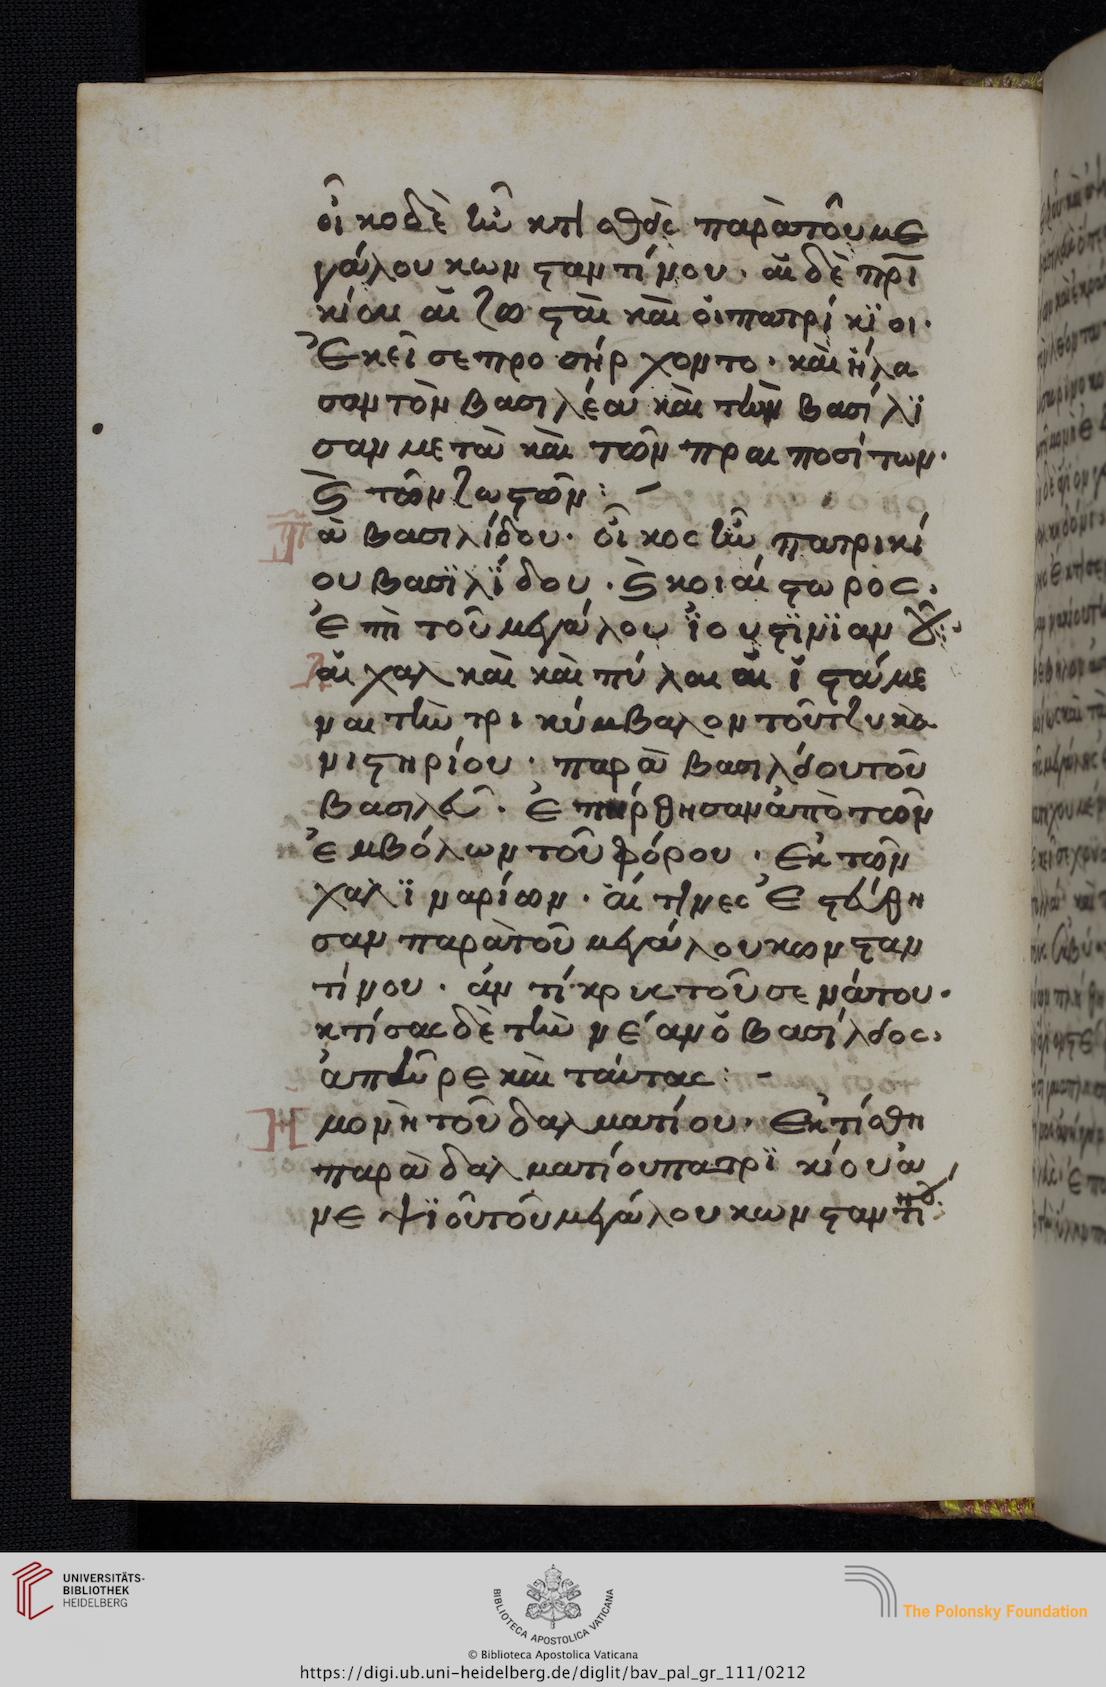 οἶκος δὲ ἦν κτισθεὶς παρὰ τοῦ με
γάλου κωνσταντίνου. αἱ δὲ πρι
κίαι αἱ ζωσταὶ καὶ οἱ πατρίκϊοι.
Ἐκεῖσε προσήρχοντο. καὶ ἤλα
σαν τὸν βασιλέα καὶ τὴν βασίλϊ
σαν μετὰ καὶ τῶν πραιποσίτων.
καὶ τῶν ζωστῶν:
Τὰ βασιλίδου. οἶκος ἦν πατρικί
ου βασϊλϊδου. καὶ κοιαίστωρος.
Ἐπὶ τοῦ μεγάλου ϊουστϊνϊανοῦ
Αἱ χαλκαὶ καὶ πύλαι αἱ ἱστάμε
ναι τὴν τρικύμβαλον τοῦ τζυκα
νιστηρίου. παρὰ βασιλείου τοῦ
βασιλέως. Ἐπήρθησαν ἀπὸ τῶν
Ἐμβόλων τοῦ φόρου. Ἐκ τῶν
χαλϊναρίων. αἵτινες Ἐστάθη
σαν παρὰ τοῦ μεγάλου κωνσταν
τίνου. ἀντίκρυς τοῦ σενάτου.
κτίσας δὲ τὴν νέαν ὁ βασίλειος.
ἀπῆρε καὶ ταύτας:
Η μονὴ τοῦ δαλματίου. Ἐκτίσθη
παρὰ δαλματίου πατρϊκίου ἀ
νεψϊοῦ τοῦ μεγάλου κωνσταντίνου
UNIVERSITÄTS-
BIBLIOTHEK
HEIDELBERG
BIBLIOTECA APOSTOLICA VATICANA
The Polonsky Foundation
© Biblioteca Apostolica Vaticana
https://digi.ub.uni-heidelberg.de/diglit/bav_pal_gr_111/0212